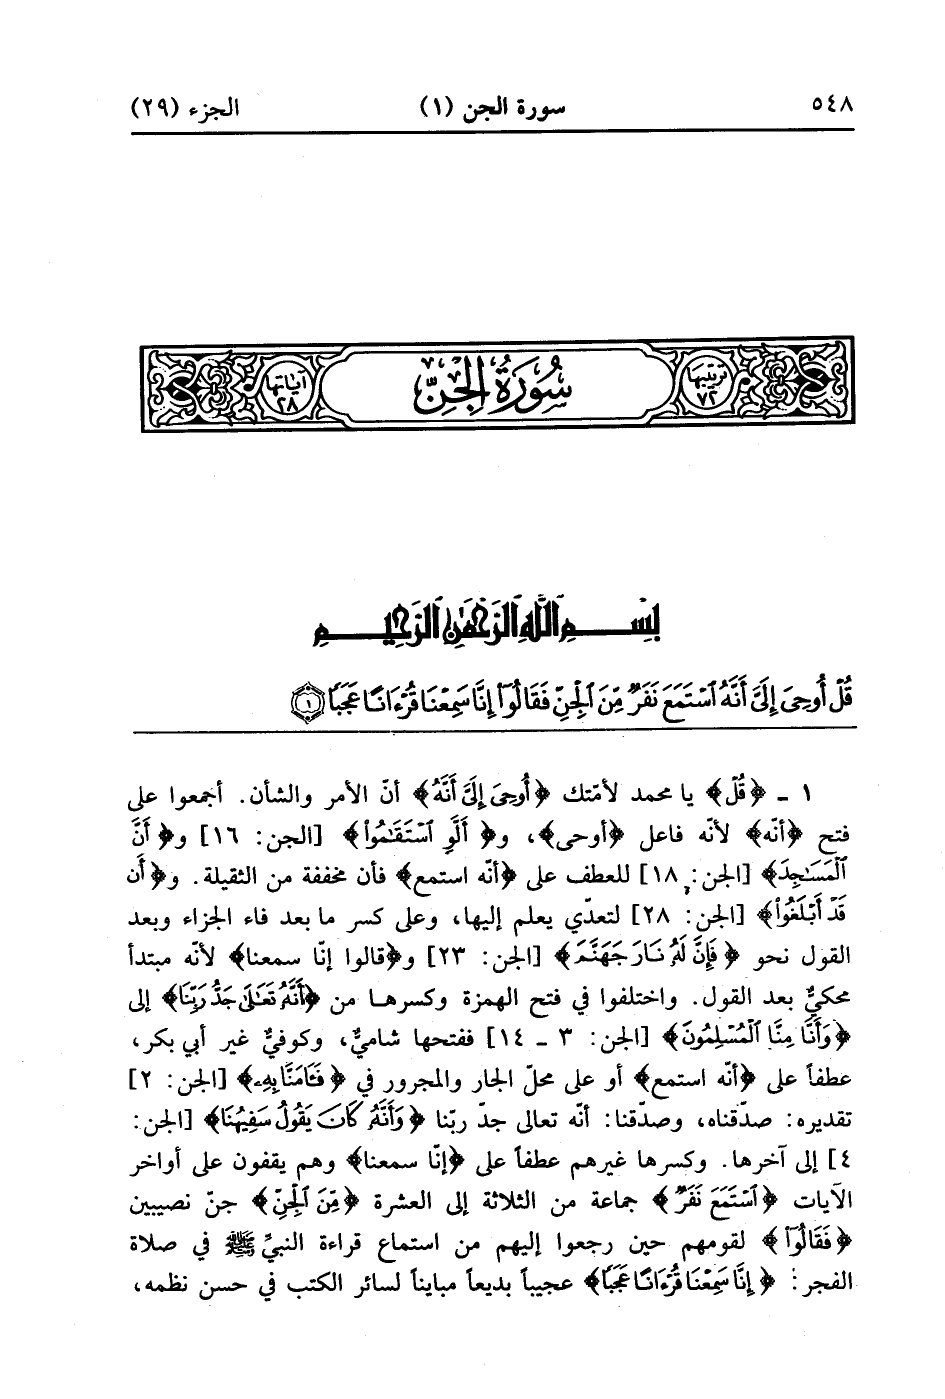 ٥٤٨ سورة الجن (١) الجزء (٢٩)
ترتيبها ٧٢ سُورَةُ الجِنِّ آياتها ٢٨
بِسْمِ اللَّهِ الرَّحْمَنِ الرَّحِيمِ
قُلْ أُوحِيَ إِلَيَّ أَنَّهُ ٱسْتَمَعَ نَفَرٌ مِّنَ ٱلْجِنِّ فَقَالُوٓا۟ إِنَّا سَمِعْنَا قُرْءَانًا عَجَبًا ﴿١﴾
١ ـ ﴿قُلْ﴾ يا محمد لأمّتك ﴿أُوحِيَ إِلَيَّ أَنَّهُ﴾ أنّ الأمر والشأن. أجمعوا على
فتح ﴿أنّه﴾ لأنّه فاعل ﴿أوحى﴾، و﴿أَلَّوِ ٱسْتَقَـٰمُوا۟﴾ [الجن: ١٦] و﴿أَنَّ
ٱلْمَسَـٰجِدَ﴾ [الجن: ١٨] للعطف على ﴿أنّه استمع﴾ فأن مخففة من الثقيلة. و﴿أَن
قَدْ أَبْلَغُوا۟﴾ [الجن: ٢٨] لتعدّي يعلم إليها، وعلى كسر ما بعد فاء الجزاء وبعد
القول نحو ﴿فَإِنَّ لَهُۥ نَارَ جَهَنَّمَ﴾ [الجن: ٢٣] و﴿قالوا إنّا سمعنا﴾ لأنّه مبتدأ
محكيٌّ بعد القول. واختلفوا في فتح الهمزة وكسرها من ﴿أَنَّهُۥ تَعَـٰلَىٰ جَدُّ رَبِّنَا﴾ إلى
﴿وَأَنَّا مِنَّا ٱلْمُسْلِمُونَ﴾ [الجن: ٣ ـ ١٤] ففتحها شاميٌّ، وكوفيٌّ غير أبي بكر،
عطفاً على ﴿أنّه استمع﴾ أو على محلّ الجار والمجرور في ﴿فَـَٔامَنَّا بِهِۦ﴾ [الجن: ٢]
تقديره: صدّقناه، وصدّقنا: أنّه تعالى جدّ ربّنا ﴿وَأَنَّهُۥ كَانَ يَقُولُ سَفِيهُنَا﴾ [الجن:
٤] إلى آخرها. وكسرها غيرهم عطفاً على ﴿إنّا سمعنا﴾ وهم يقفون على أواخر
الآيات ﴿ٱسْتَمَعَ نَفَرٌ﴾ جماعة من الثلاثة إلى العشرة ﴿مِّنَ ٱلْجِنِّ﴾ جنّ نصيبين
﴿فَقَالُوٓا۟﴾ لقومهم حين رجعوا إليهم من استماع قراءة النبيّ ﷺ في صلاة
الفجر: ﴿إِنَّا سَمِعْنَا قُرْءَانًا عَجَبًا﴾ عجيباً بديعاً مبايناً لسائر الكتب في حسن نظمه،